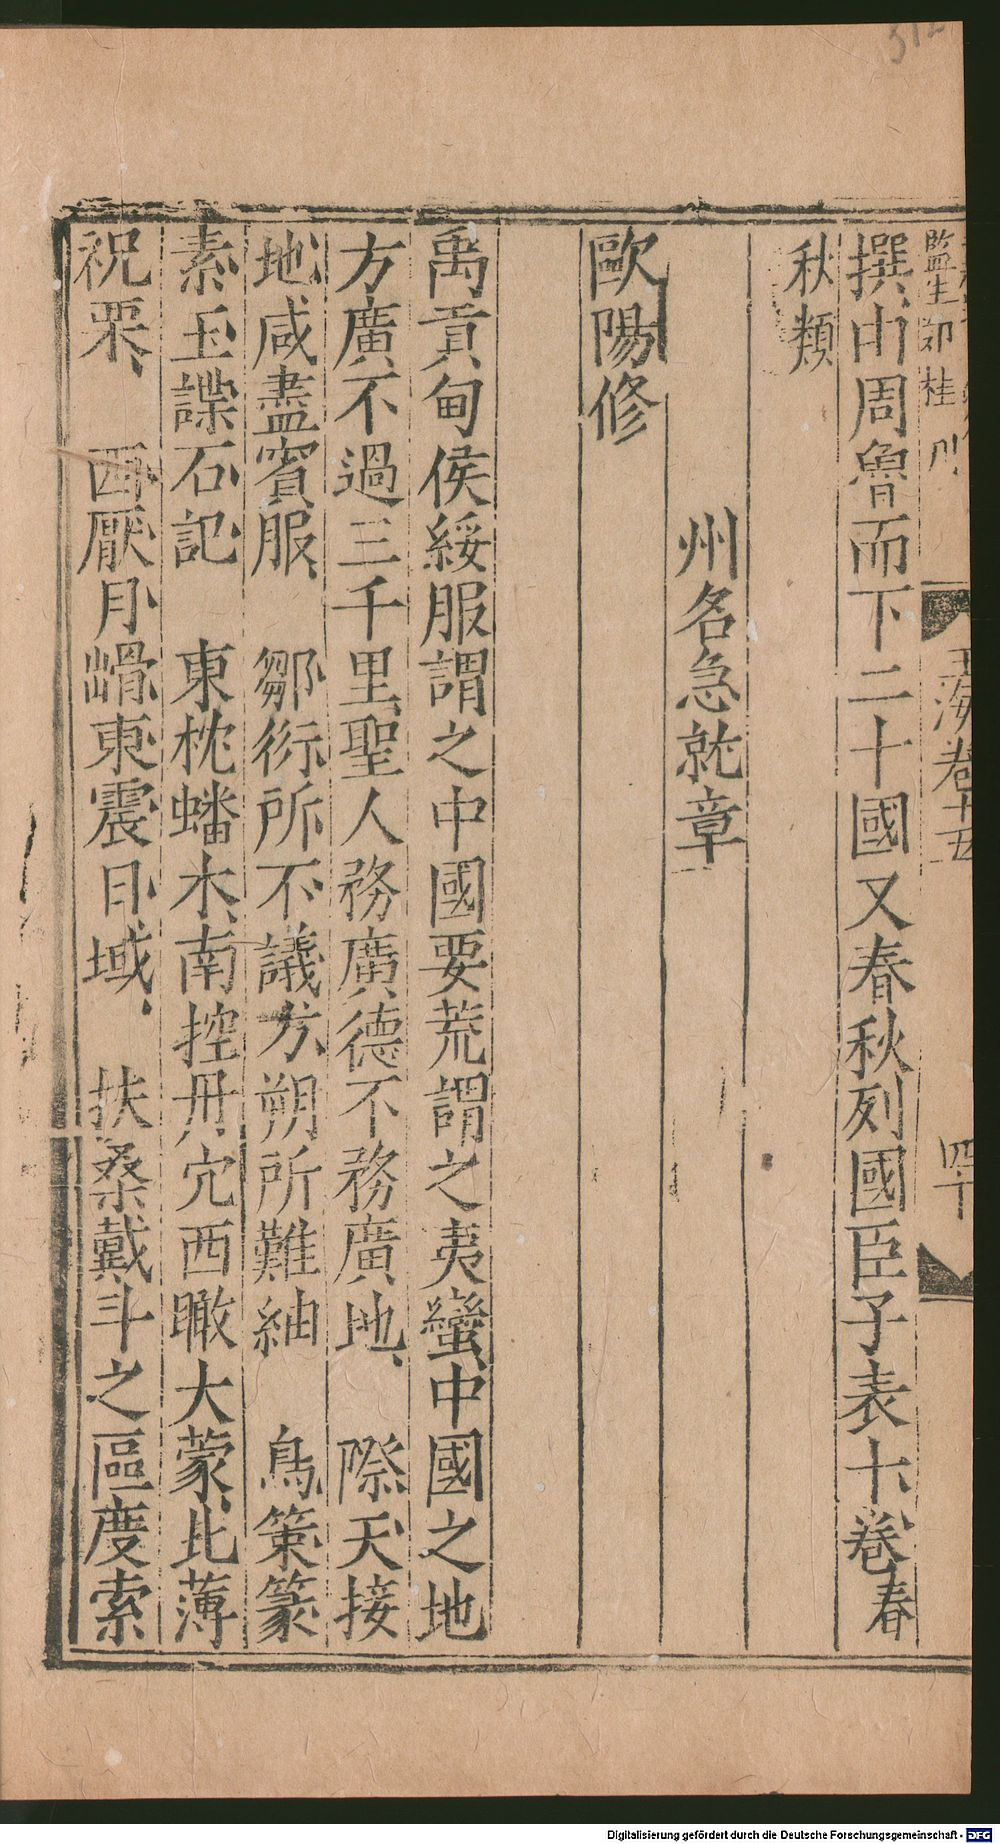 監生 桂
玉海卷十五
四十
撰由周魯而下二十國又春秋列國臣子表十卷春
秋類
州名急就章
歐陽修
禹貢甸侯綏服謂之中國要荒謂之夷蠻中國之地
方廣不過三千里聖人務廣德不務廣地、 際天接
地咸盡賓服、 鄒衍所不議方朔所難紬 鳥策篆
素玉諜石記 東枕蟠木、南控丹穴西瞰大蒙、北薄
祝栗、 西厭月䯏東震日域、 扶桑戴斗之區度索
Digitalisierung gefördert durch die Deutsche Forschungsgemeinschaft - DFG